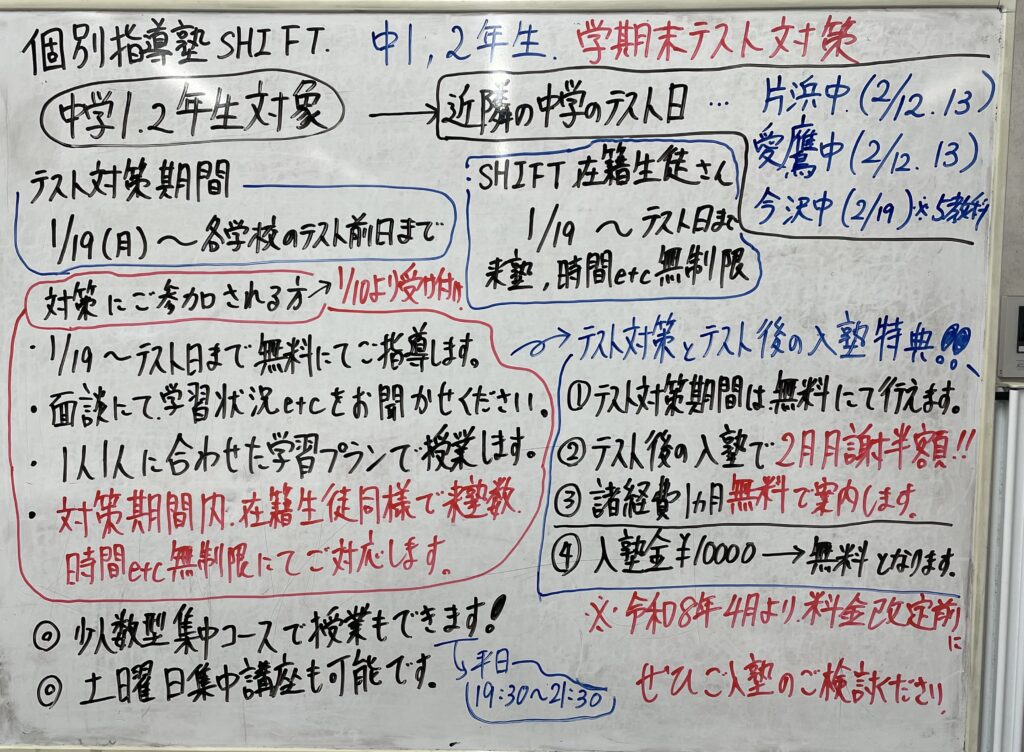 個別指導塾SHIFT. 中1,2年生. 学期末テスト対策
中学1.2年生対象 → 近隣の中学のテスト日 … 片浜中.(2/12.13)
愛鷹中(2/12.13)
今沢中(2/19)※5教科
テスト対策期間
1/19(月)〜各学校のテスト前日まで
SHIFT在籍生徒さん
1/19 〜 テスト日まで
来塾,時間etc無制限
対策にご参加される方→1/10より受け付け
・1/19〜テスト日まで無料にてご指導します。
・面談にて.学習状況etcをお聞かせください。
・1人1人に合わせた学習プランで授業します。
・対策期間内.在籍生徒同様で来塾数.
時間etc無制限にてご対応します。
→テスト対策とテスト後の入塾特典!!!
①テスト対策期間は.無料にて行えます。
②テスト後の入塾で2月月謝半額!!
③諸経費1カ月無料で案内します。
④入塾金¥10000→無料となります。
◎少人数型集中コースで授業もできます!
◎土曜日集中講座も可能です。
平日
19:30〜21:30
※令和08年4月より.料金改定前に
ぜひご入塾のご検討ください.